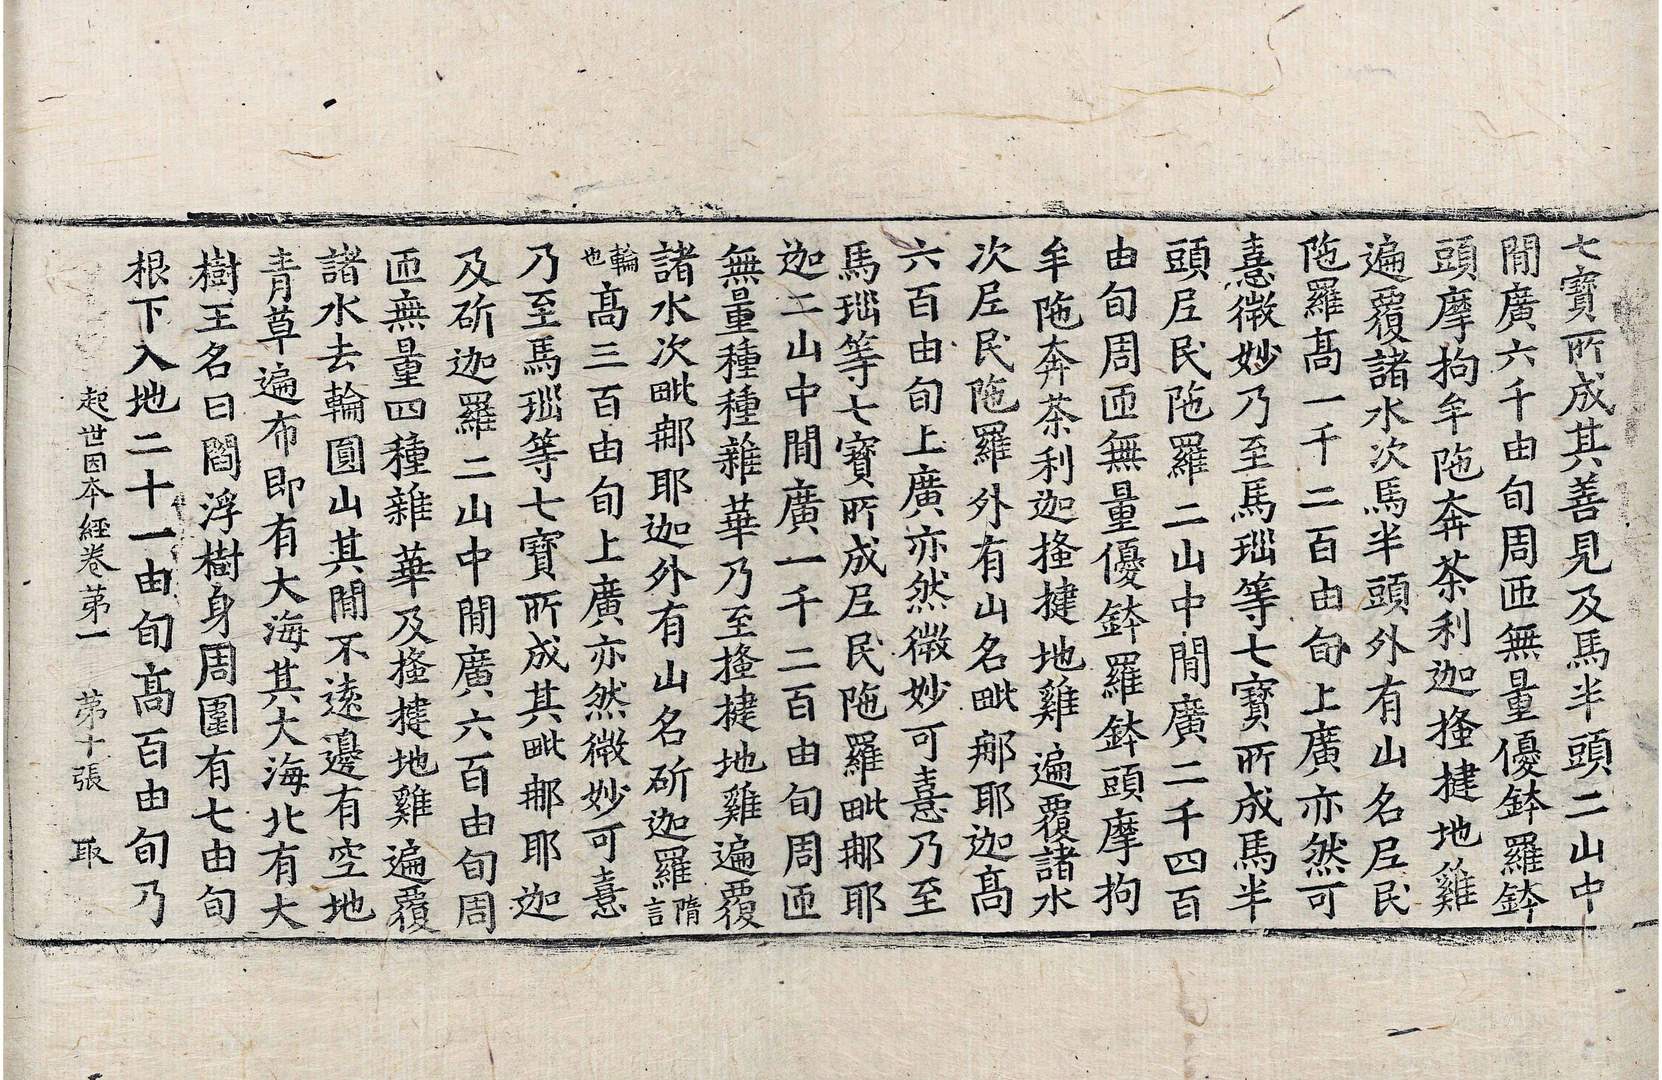 七寶所成其善見及馬半頭二山中
閒廣六千由旬周匝無量優鉢羅鉢
頭摩拘牟陁奔荼利迦搔揵地雞
遍覆諸水次馬半頭外有山名𡰱民
陁羅高一千二百由旬上廣亦然可
憙微妙乃至馬瑙等七寶所成馬半
頭𡰱民陁羅二山中閒廣二千四百
由旬周匝無量優鉢羅鉢頭摩拘
牟陁奔荼利迦搔揵地雞遍覆諸水
次𡰱民陁羅外有山名毗那耶迦高
六百由旬上廣亦然微妙可憙乃至
馬瑙等七寶所成𡰱民陁羅毗那耶
迦二山中閒廣一千二百由旬周匝
無量種種雜華乃至搔揵地雞遍覆
諸水次毗那耶迦外有山名斫迦羅隋言
輪也高三百由旬上廣亦然微妙可憙
乃至馬瑙等七寶所成其毗那耶迦
及斫迦羅二山中閒廣六百由旬周
匝無量四種雜華及搔揵地雞遍覆
諸水去輪圓山其閒不遠邊有空地
青草遍布即有大海其大海北有大
樹王名曰閻浮樹身周圍有七由旬
根下入地二十一由旬高百由旬乃
起世因本經卷第一 第十張 取